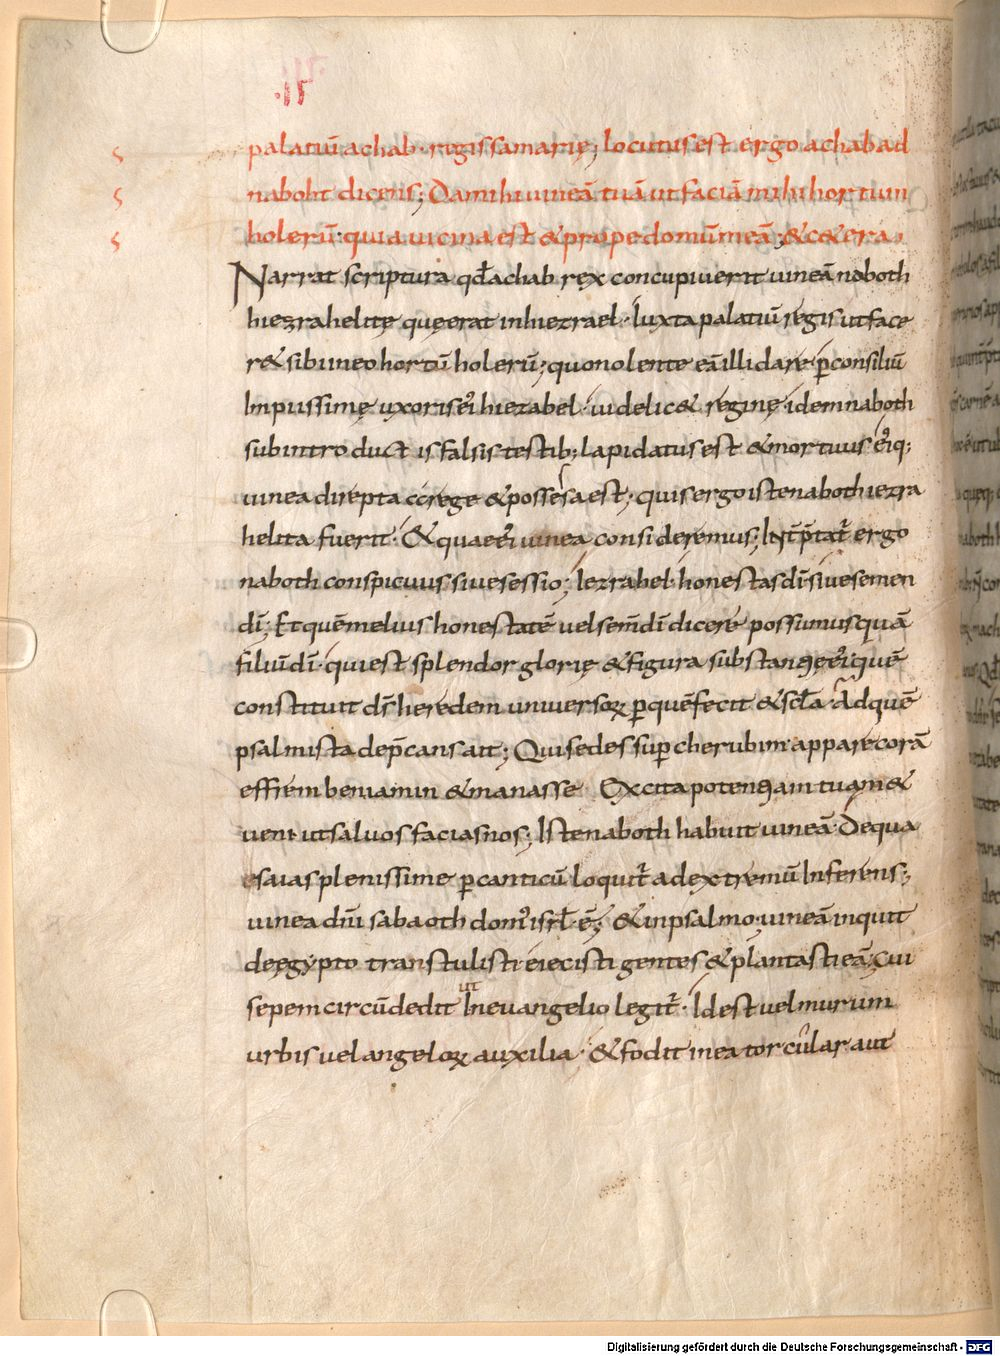 palatiũ achab · regis samarię; locutus est ergo achab ad
naboht dicens; Da mihi uineã tuã ut faciã mihi hortum
holerũ · quia uicina est & prope domũ meã; & c&era;
Narrat scriptura qđ achab rex concupiuerit uineã naboth
hiezrahelitę quę erat in hiezrael · Iuxta palatiũ regis ut face
r& sibi in eo hortũ holerũ; quo nolente eã illi dare · ꝑ consiliũ
Impiissimę uxoris ei᾽ hiezabel · uidelic& reginę · idem naboth
subintroductis falsis testib; lapidatus est & mortuus · ei᾽q;
uinea direpta a rege & possessa est; quis ergo iste naboth iezra
helita fuerit · & quae ei᾽ uinea consideremus; Int̃p̃tat̃ ergo
naboth conspicuus siue sessio; Iezrahel · honestas dĩ siue semen
dĩ; Et quẽ melius honestatẽ uel sem̃ dĩ dicere possumus quã
filiũ dĩ · qui est splendor glorię & figura substantię ei᾽ quẽ
constituit ds̃ heredem uniuersoꝝ ꝑ quẽ fecit & scl̃a · Ad quẽ
psalmista dep̃cans ait; Qui sedes sup cherubim · appare corã
effrem beniamin & manasse Excita potentiam tuam &
ueni ut saluos facias nos; Iste naboth habuit uineã · De qua
esaias plenissime ꝑ canticũ loquit̃ ad extremũ Inferens;
uinea dñi sabaoth dom᾽ isrl̃ · ẽ; & in psalmo; uineã inquit
de ęgypto transtulisti · eiecisti gentes & plantasti eã; Cui
sepem circũdedit ut In euangelio legit̃ · Id est uel murum
urbis uel angeloꝝ auxilia · & fodit in ea torcular aut
Digitalisierung gefördert durch die Deutsche Forschungsgemeinschaft - DFG